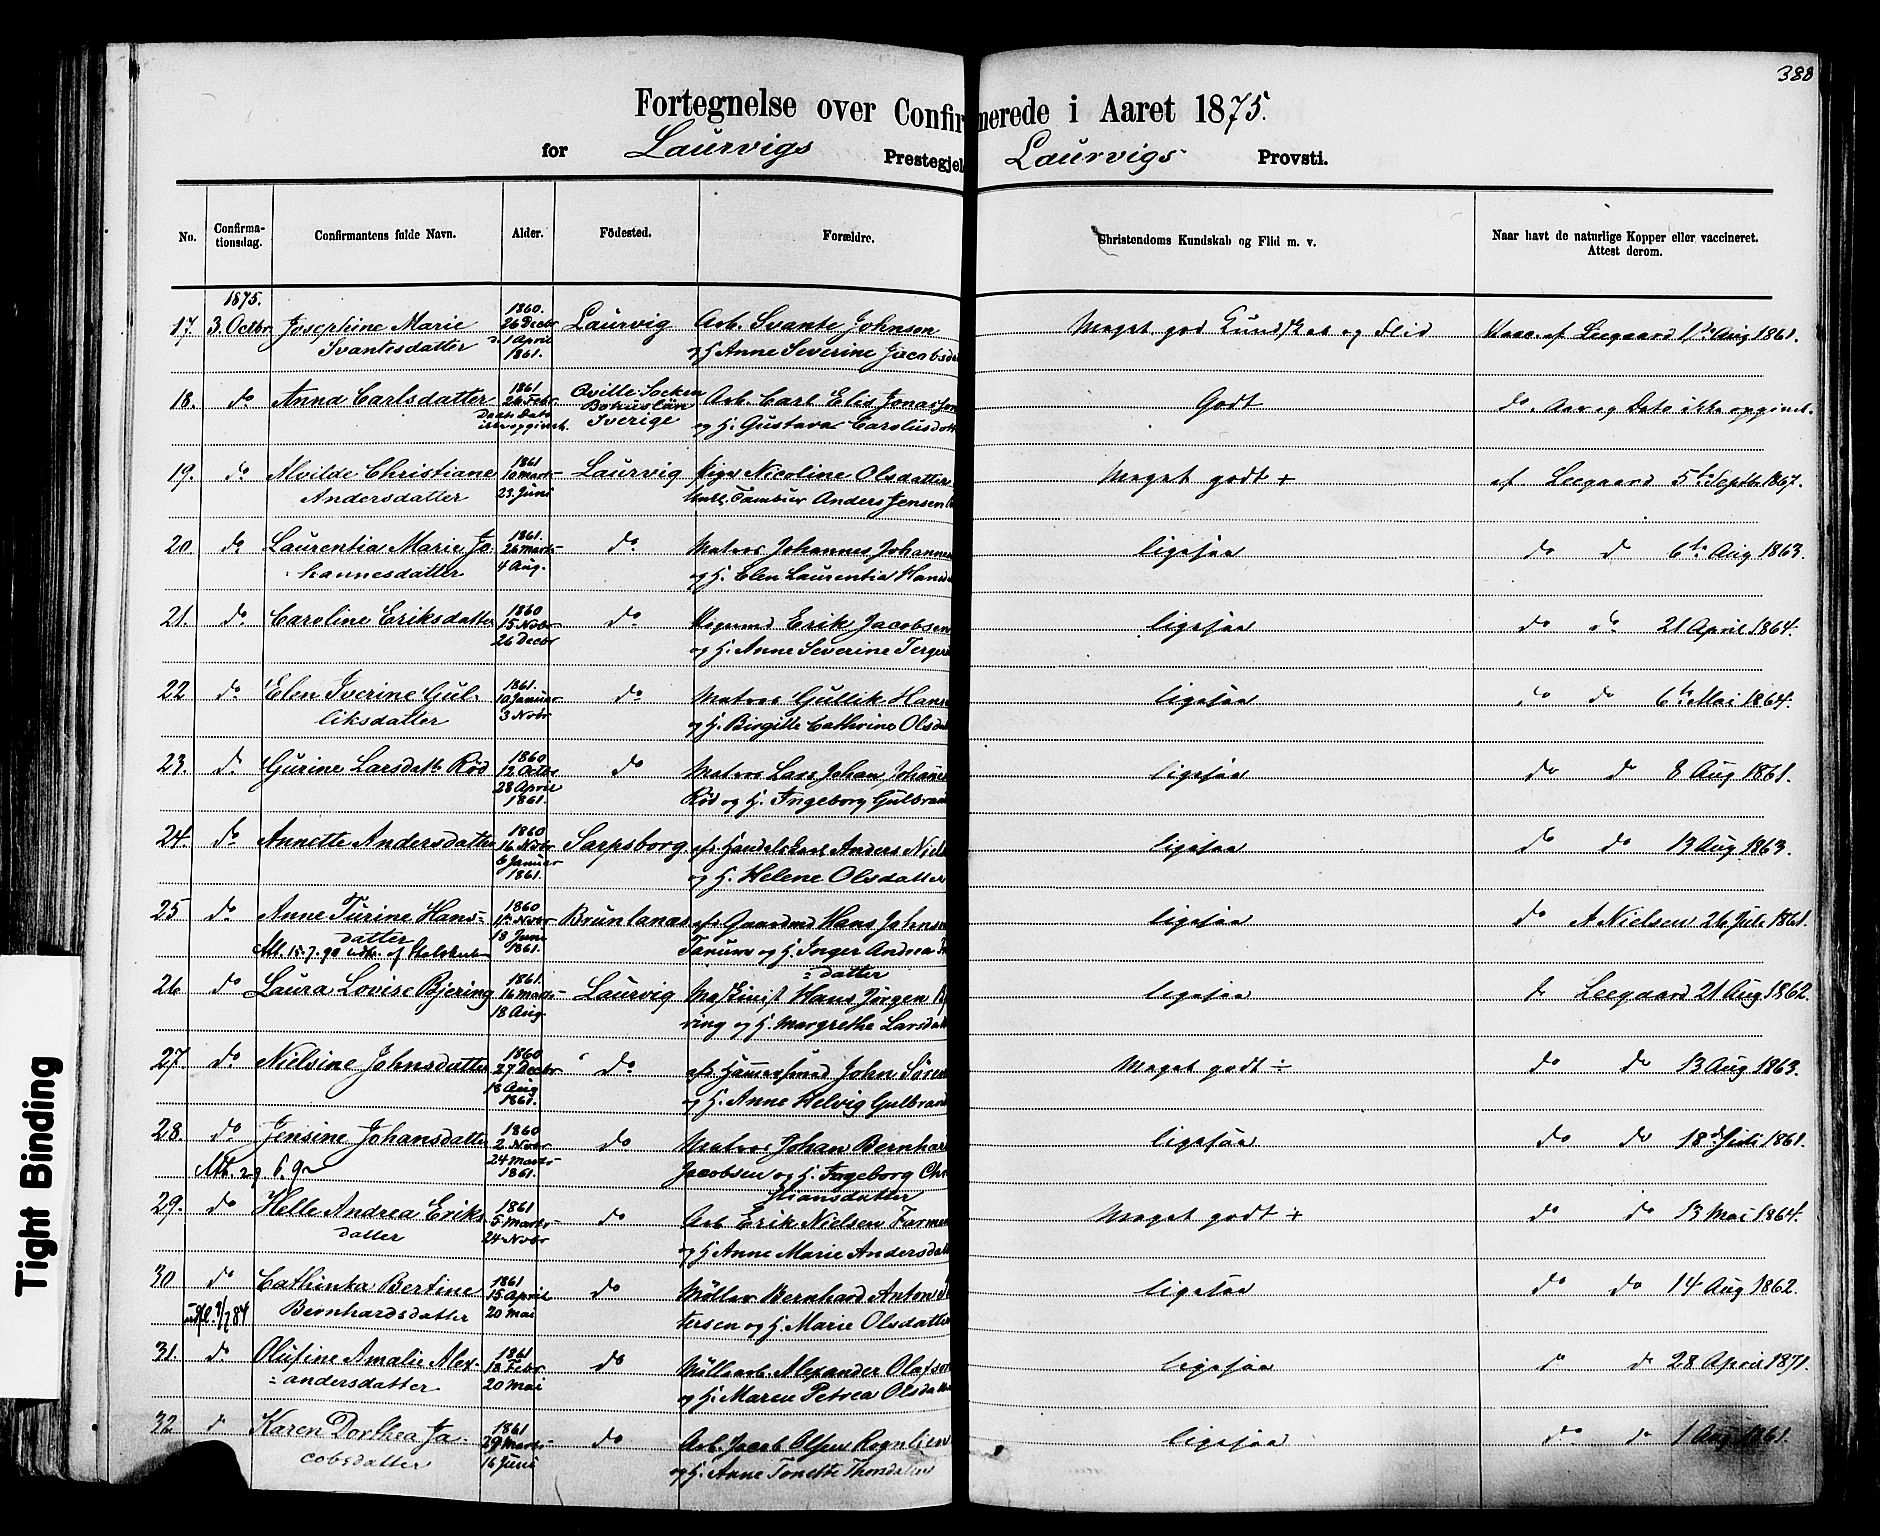 388
Fortegnelse over Confirmerede i Aaret 1875.
for Laurvigs Prestegjel Laurvigs Provsti.
No. Confirmationsdag. Confirmantens fulde Navn. Alder. Födested. Forældre. Christendoms Kundskab og Flid m. v. Naar havt de naturlige Kopper eller vaccineret. Attest derom.
1875. 1860.
17. 3. Octbr Josephine Marie 26 Decbr Laurvig Arb. Svante Johnsen Meget god Kundskab og Flid Vacc. af Leegaard 1ste Aug 1861.
Svantesdatter 1 April 1861. og H. Anne Severine Jacobsda
18. do Anna Carlsdatter 1861 24 Febr Qville Socken Arb. Carl Elis Jonasson Godt do. Aar og Dato ikke opgivet.
Daabs Dato ikke opgivet. Bohuslän Sverige og H. Gustava Carolusdott
19. do Alvilde Christiane 1861 10 Marts Laurvig Pige Nicoline Olsdatter Meget godt + af Leegaard 5te Septbr 1867.
Andersdatter 23 Juni Tambur Anders Jensen
20. do Laurentia Marie Jo- 1861. 26 Marts do. Matros Johannes Johannes ligesaa do do 6te Aug 1863.
hannesdatter 4 Aug. og H. Elen Laurentia Hansd
21. do Caroline Eriksdatter 1860 15 Novbr do. Erik Jacobsen ligesaa do do 21 April 1864.
26 Decbr og H. Anne Severine Terges
22 do Elen Iverine Gul- 1861. 10 Januar do Matros Gullik Hans ligesaa do do 6te Mai 1864.
liksdatter 3 Novbr og H. Birgitte Cathrine Olsda
23. do Gurine Larsdatt. Röd 1860 12 Octbr do Matros Lars Johan Johanne ligesaa do do 8 Aug 1861.
28 April 1861. Röd og H. Ingeborg Gulbran
24. do Annette Andersdatter 1860 16 Novbr Sarpsborg afd. Handelskarl Anders Niel ligesaa do do 13 Aug 1863.
6 Januar 1861. og H. Helene Olsdatter
25 do Anne Turine Hans- 1860 Novbr Brunlanæs afd. Gaardmd Hans Johnse ligesaa do A Nielsen 26 Juli 1861.
datter 18 Juni 1861. Tanum og H. Inger Andrea
Att. 15.7.90 udst. af
- datter
26 do Laura Lovise Bjering 1861. 16 Marts Laurvig Maskinist Hans Jörgen Bj ligesaa do Leegaard 21 Aug 1862.
18 Aug. ring og H. Margrethe Larsdatt
27. do Nielsine Johnsdatter 1860 27 Decbr do. afd. Hammersmed John Sören Meget godt ÷ do do 13 Aug 1863.
18 Aug 1861. og H. Anne Helvig Gulbran
28. do Jensine Johansdatter 1860 2. Novbr do Matros Johan Bernhar ligesaa do do 18de Juli 1861.
Att. 29 24 Marts 1861. Jacobsen og H. Ingeborg Chri
stiansdatter
29. do Helle Andrea Eriks 1861 5 Marts do Arb Erik Nielsen Farmen Meget godt + do do 13 Mai 1864.
datter 24 Novbr og H Anne Marie Andersdatt
30 do Cathinka Bertine 1861 15 April do Möller Bernhard Anton ligesaa do do 14 Aug 1862.
84 Bernhardsdatter 20 Mai tersen og H. Marie Olsdatter
31. do Olufine Amalie Alex- 1861 18 Febr do Möllearb. Alexander Olafsen ligesaa do do 28 April 1871.
- andersdatter 20 Mai og H. Maren Petrea Olsdatte
32 do Karen Dorthea Ja- 1861 29 Marts do Arb. Jacob Olsen Rognlien ligesaa do. do 1 Aug 1861.
cobsdatter 16 Juni og H. Anne Tonette
Tight Binding